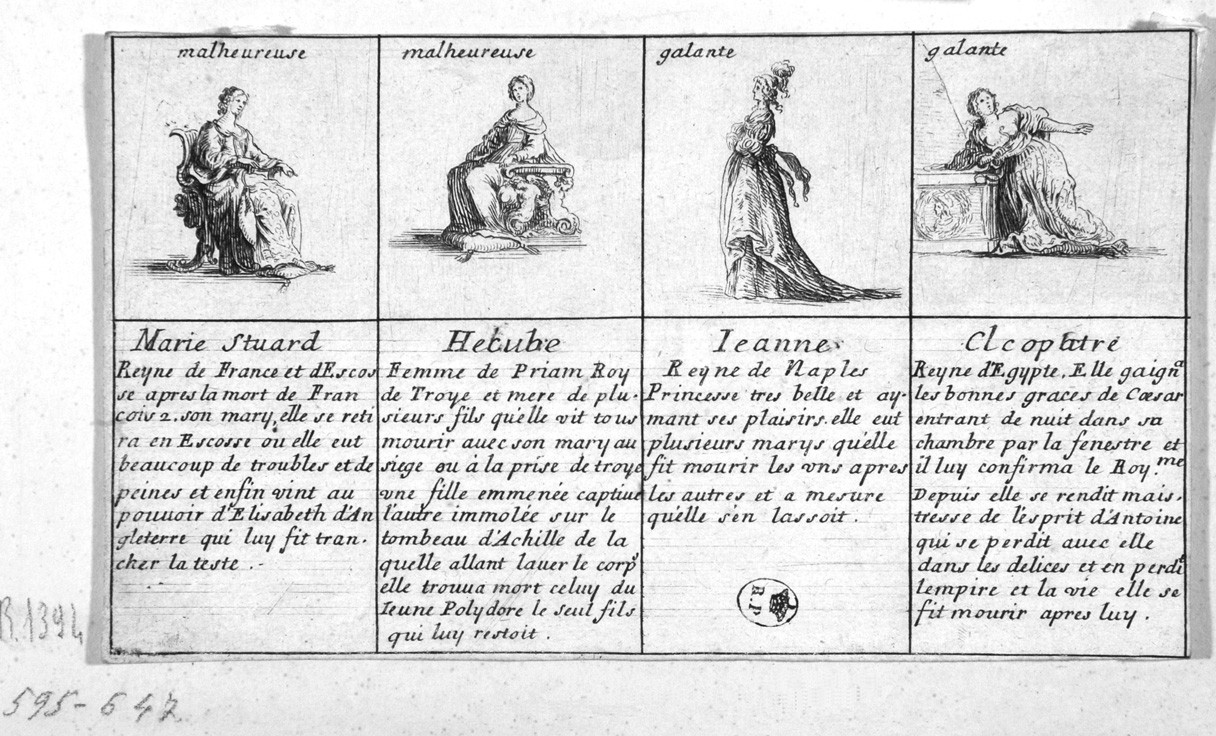 malheureuse
Marie Stuard
Reyne de France et d'Escos
se apres la mort de Fran
cois 2. son mary, elle se reti
ra en Escosse ou elle eut
beaucoup de troubles et de
peines et enfin vint au
pouuoir d'Elisabeth d'An
gleterre qui luy fit tran-
cher la teste .
malheureuse
Hecube
Femme de Priam Roy
de Troye et mere de plu-
sieurs fils qu'elle vit tous
mourir auec son mary au
siege ou à la prise de troye
vne fille emmenée captiue
l'autre immolée sur le
tombeau d'Achille de la
quelle allant lauer le corps
elle trouua mort celuy du
Ieune Polydore le seul fils
qui luy restoit .
galante
Ieanne
Reyne de Naples
Princesse tres belle et ay-
mant ses plaisirs. elle eut
plusieurs marys qu'elle
fit mourir les vns apres
les autres et a mesure
qu'elle s'en lassoit .
R.P
galante
Cleopatre
Reyne d'Egypte, Elle gaigna
les bonnes graces de Cæsar
entrant de nuit dans sa
chambre par la fenestre et
il luy confirma le Roy.me
Depuis elle se rendit mais-
tresse de l'esprit d'Antoine
qui se perdit auec elle
dans les delices et en perdit
lempire et la vie elle se
fit mourir apres luy .
R.1394
595-647